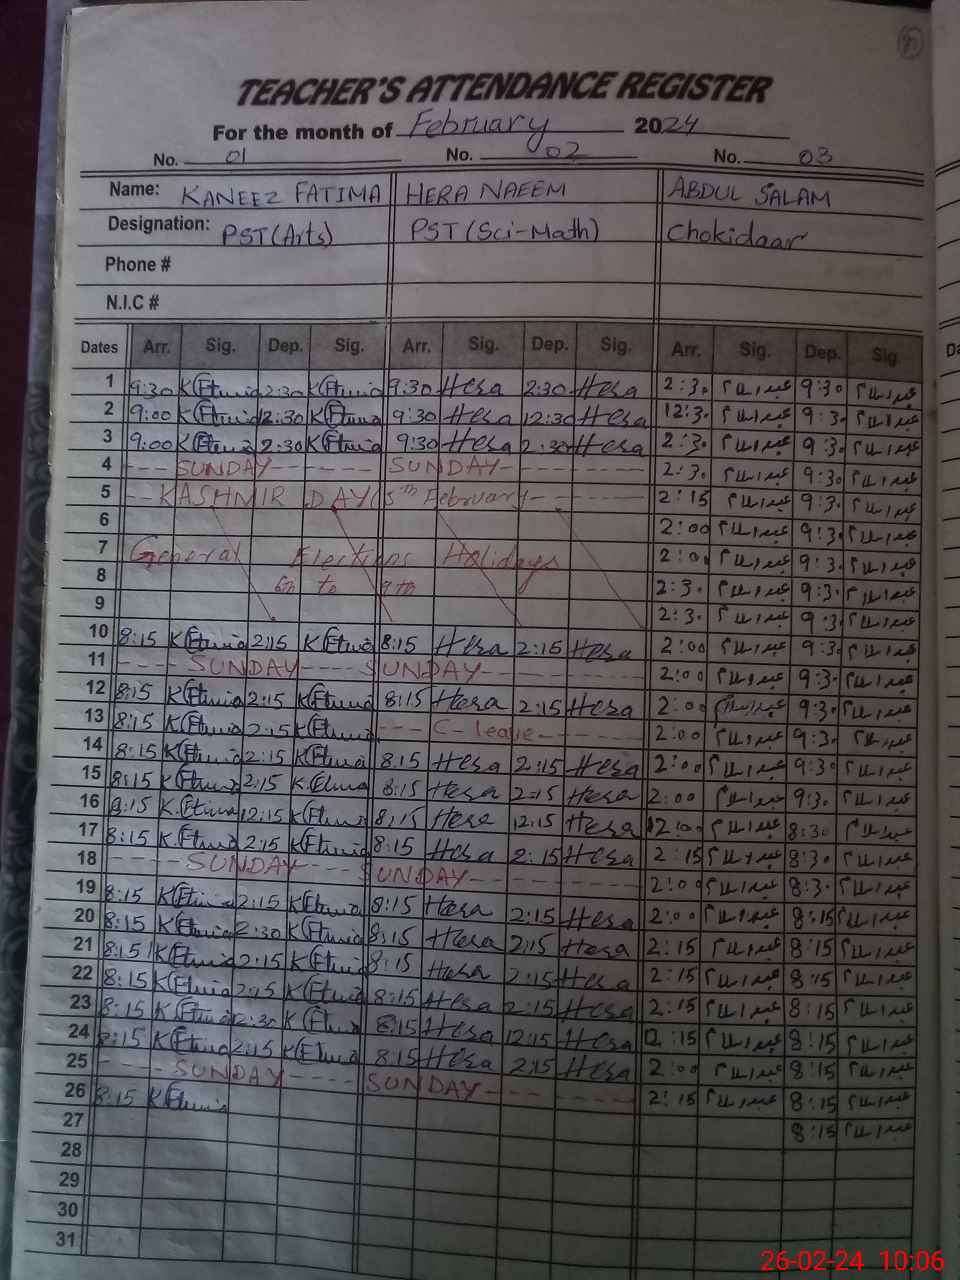 TEACHER'S ATTENDANCE REGISTER
For the month of February 2024
No. 01 No. 02 No. 03
Name: KANEEZ FATIMA HERA NAEEM ABDUL SALAM
Designation: PST(Arts) PST (Sci-Math) Chokidaar
Phone #
N.I.C #
Dates Arr. Sig. Dep. Sig. Arr. Sig. Dep. Sig. Arr. Sig. Dep. Sig.
1 9:30 2:30 9:30 Hera 2:30 Hera 2:30 عبدالسلام 9:30 عبدالسلام
2 9:00 12:30 9:30 Hera 12:30 Hera 12:30 عبدالسلام 9:30 عبدالسلام
3 9:00 2:30 9:30 Hera 2:30 Hera 2:30 عبدالسلام 9:30 عبدالسلام
4 SUNDAY SUNDAY 2:30 عبدالسلام 9:30 عبدالسلام
5 KASHMIR DAY (5th February) 2:15 عبدالسلام 9:30 عبدالسلام
6 2:00 عبدالسلام 9:30 عبدالسلام
7 General Elections Holidays 2:00 عبدالسلام 9:30 عبدالسلام
8 6th to 9th 2:30 عبدالسلام 9:30 عبدالسلام
9 2:30 عبدالسلام 9:30 عبدالسلام
10 8:15 2:15 8:15 Hera 2:15 Hera 2:00 عبدالسلام 9:30 عبدالسلام
11 SUNDAY SUNDAY 2:00 عبدالسلام 9:30 عبدالسلام
12 8:15 2:15 8:15 Hera 2:15 Hera 2:00 عبدالسلام 9:30 عبدالسلام
13 8:15 2:15 C-leave 2:00 عبدالسلام 9:30 عبدالسلام
14 8:15 2:15 8:15 Hera 2:15 Hera 2:00 عبدالسلام 9:30 عبدالسلام
15 8:15 2:15 8:15 Hera 2:15 Hera 2:00 عبدالسلام 9:30 عبدالسلام
16 8:15 12:15 8:15 Hera 12:15 Hera 12:00 عبدالسلام 8:30 عبدالسلام
17 8:15 2:15 8:15 Hera 2:15 Hera 2:15 عبدالسلام 8:30 عبدالسلام
18 SUNDAY SUNDAY 2:00 عبدالسلام 8:30 عبدالسلام
19 8:15 2:15 8:15 Hera 2:15 Hera 2:00 عبدالسلام 8:15 عبدالسلام
20 8:15 2:30 8:15 Hera 2:15 Hera 2:15 عبدالسلام 8:15 عبدالسلام
21 8:15 2:15 8:15 Hera 2:15 Hera 2:15 عبدالسلام 8:15 عبدالسلام
22 8:15 2:15 8:15 Hera 2:15 Hera 2:15 عبدالسلام 8:15 عبدالسلام
23 8:15 12:30 8:15 Hera 12:15 Hera 12:15 عبدالسلام 8:15 عبدالسلام
24 8:15 2:15 8:15 Hera 2:15 Hera 2:00 عبدالسلام 8:15 عبدالسلام
25 SUNDAY SUNDAY 2:15 عبدالسلام 8:15 عبدالسلام
26 8:15 8:15 عبدالسلام
27
28
29
30
31
26-02-24 10:06